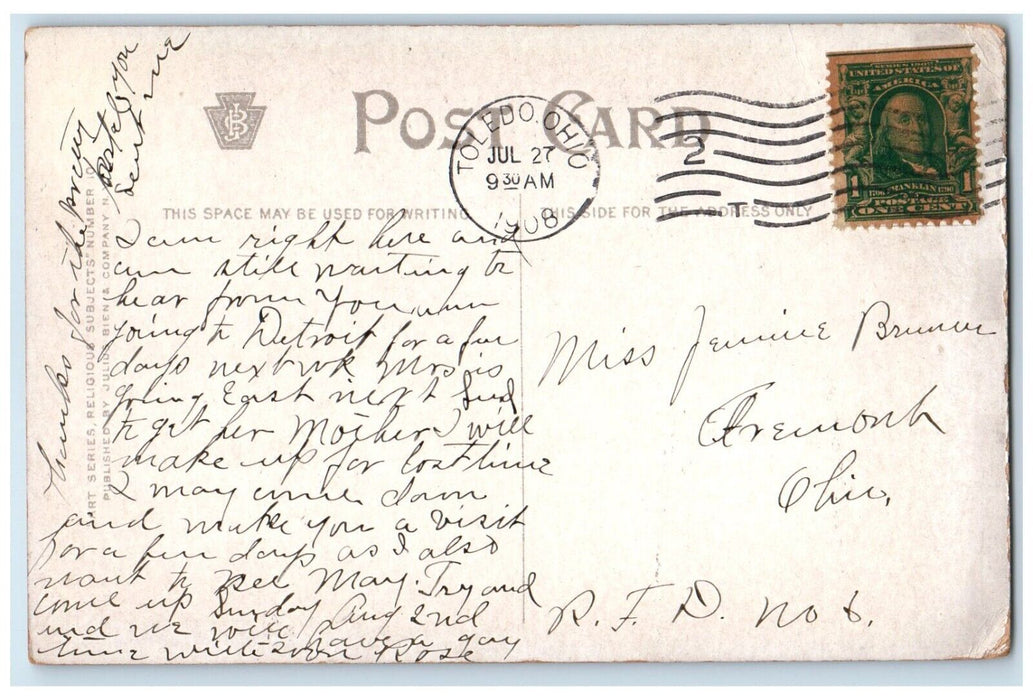 POST CARD
JB
TOLEDO, OHIO
JUL 27
9 30 AM
1908
2
T
SERIES 1902
UNITED STATES OF
AMERICA
1706 FRANKLIN 1790
1 1
POSTAGE
ONE CENT
THIS SPACE MAY BE USED FOR WRITING
THIS SIDE FOR THE ADDRESS ONLY
ART SERIES, RELIGIOUS SUBJECTS" NUMBER 10
PUBLISHED BY JULIUS BIEN & COMPANY N.
Thanks for the pretty
postal you
sent me
I am right here and
am still waiting to
hear from you, am
going to Detroit for a few
days next wk Mrs is
going East next Sund
to get her Mother I will
make up for lost time
I may come down
and make you a visit
for a few days as I also
want to see May. Try and
come up Sunday Aug 2nd
and we will have a gay
time write soon Rose
Miss Jennie Brunner
Fremont
Ohio,
R. F. D. No 6.